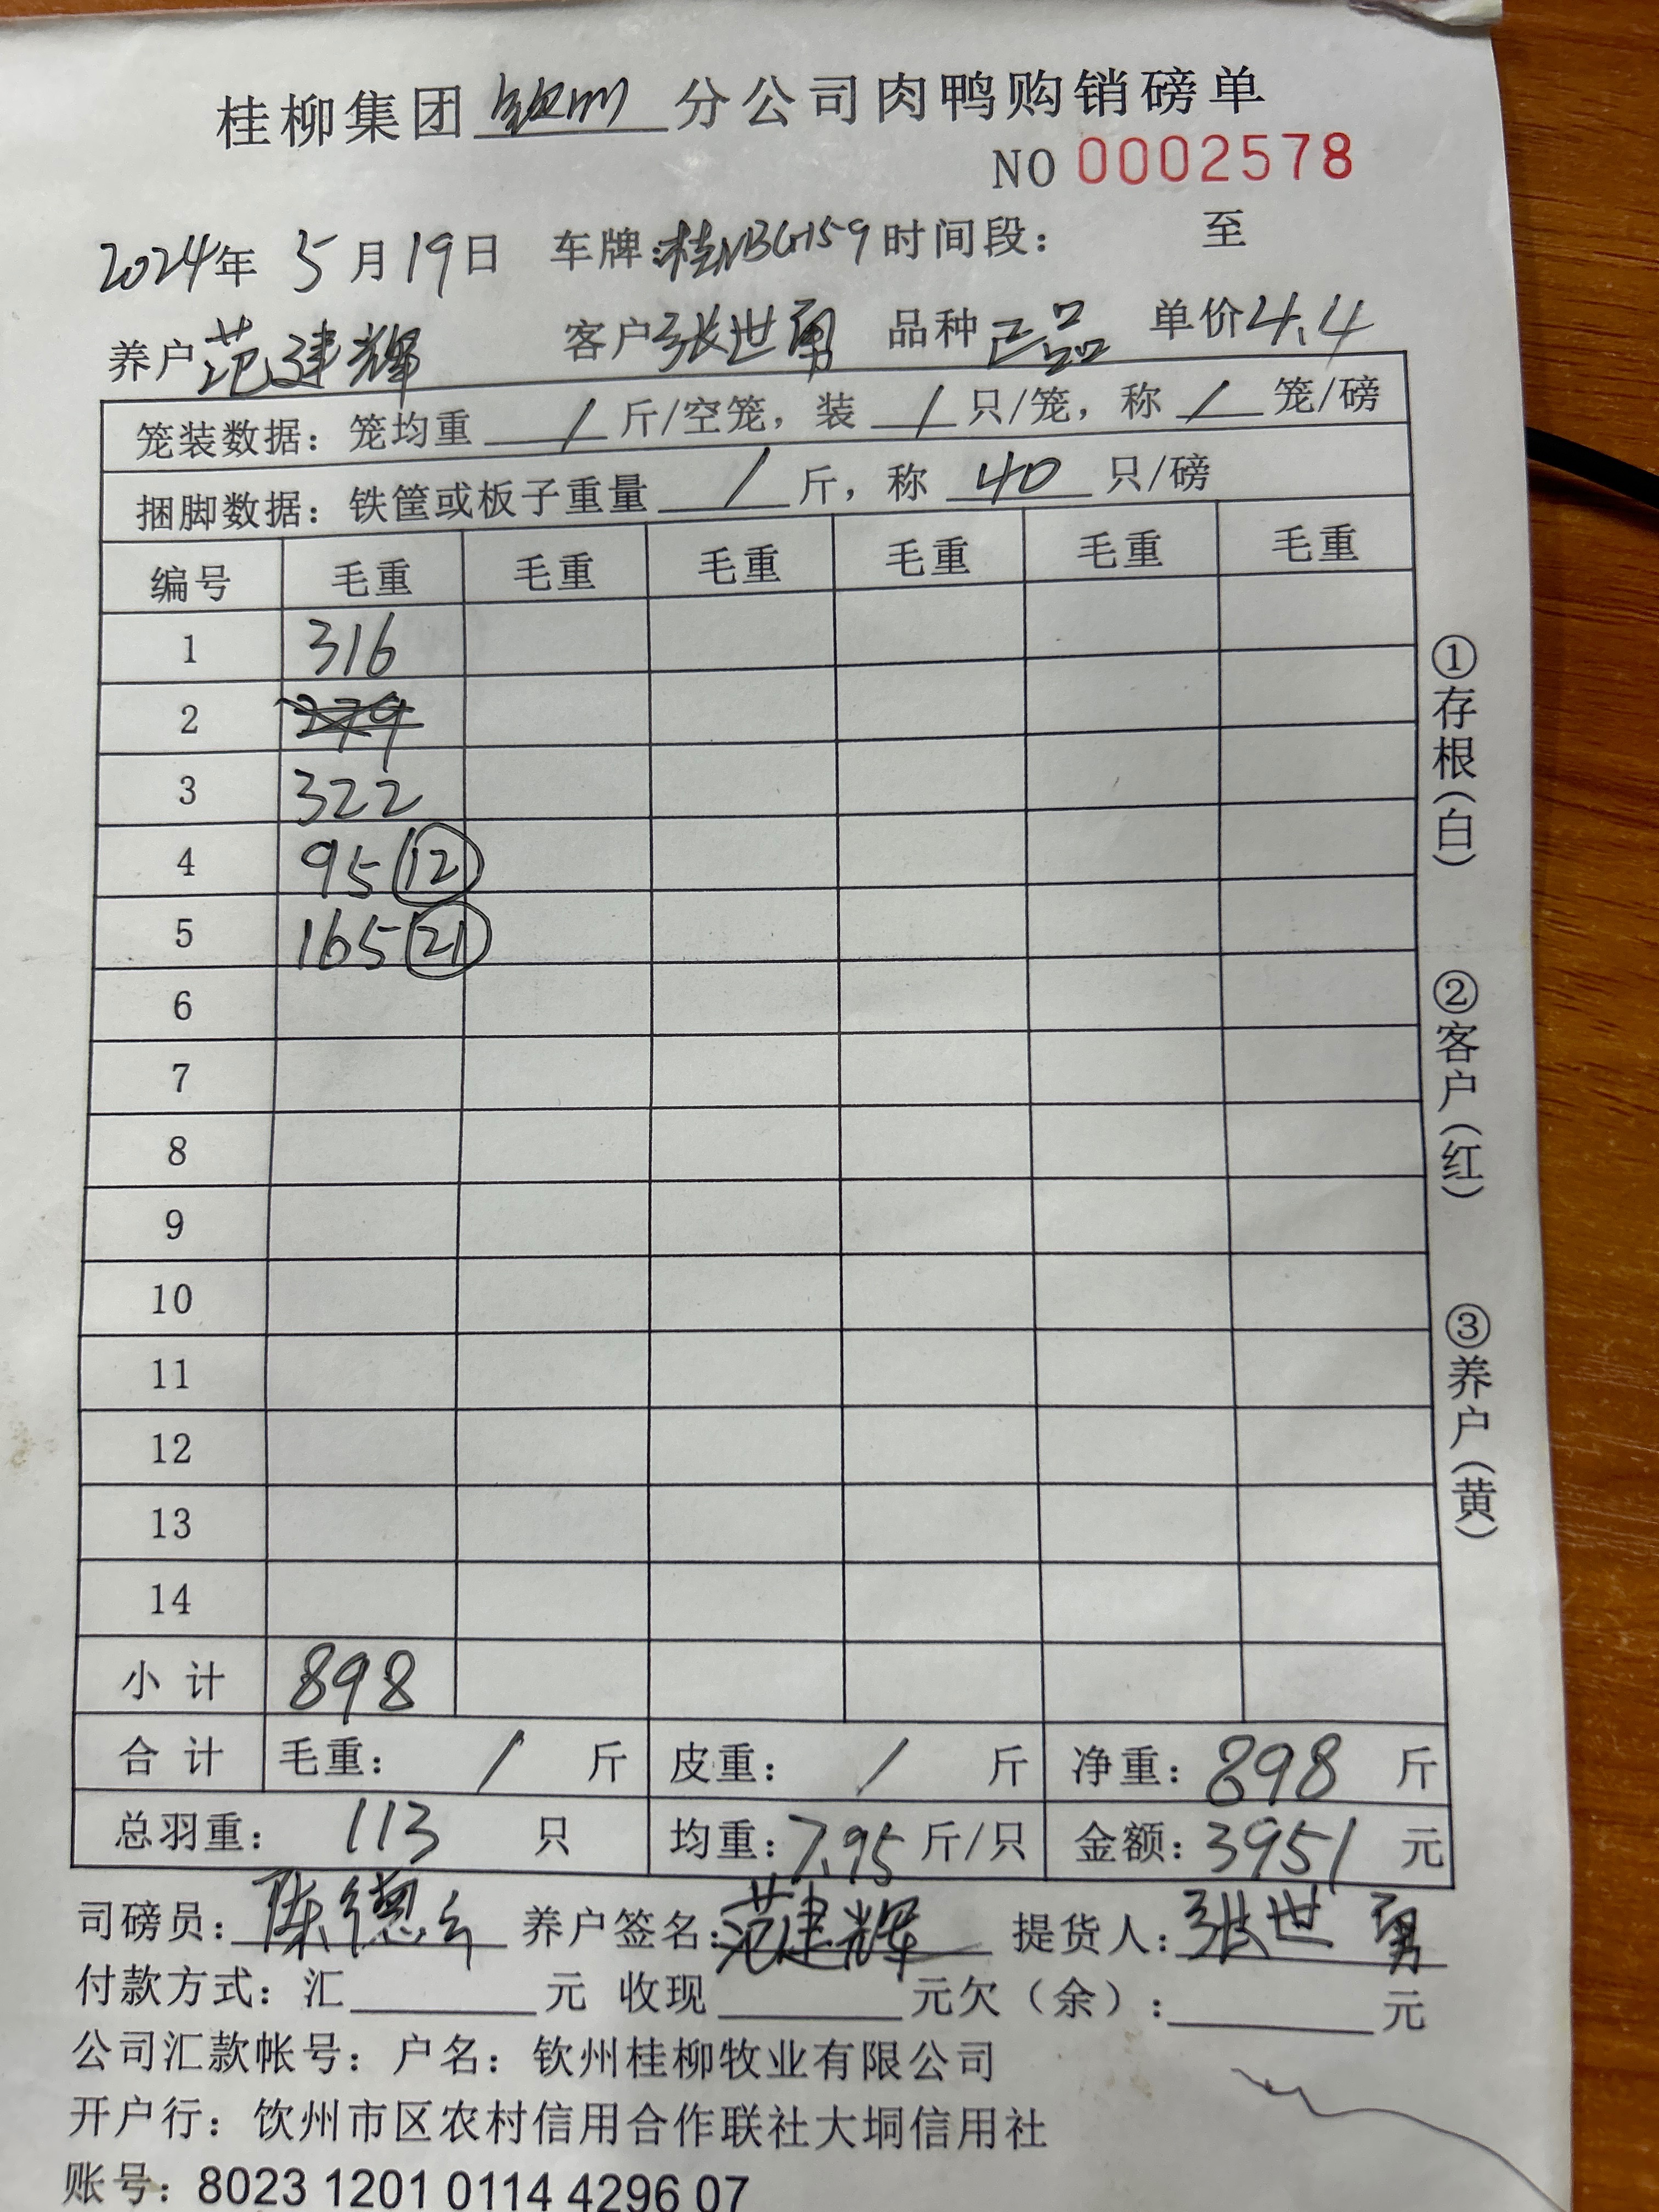 桂柳集团 钦州 分公司肉鸭购销磅单
NO 0002578
2024年 5月19日 车牌:桂NBG159 时间段: 至
养户 范建辉 客户 张世勇 品种 正品 单价 4.4
笼装数据: 笼均重 / 斤/空笼, 装 / 只/笼, 称 / 笼/磅
捆脚数据: 铁筐或板子重量 / 斤, 称 40 只/磅
编号 毛重 毛重 毛重 毛重 毛重 毛重
1 316
2
3 322
4 95 ⑫
5 165 ㉑
6
7
8
9
10
11
12
13
14
小计 898
合计 毛重: / 斤 皮重: / 斤 净重: 898 斤
总羽重: 113 只 均重: 7.95 斤/只 金额: 3951 元
司磅员: 陈德 养户签名: 范建辉 提货人: 张世勇
付款方式: 汇 元 收现 元欠(余): 元
公司汇款帐号: 户名: 钦州桂柳牧业有限公司
开户行: 饮州市区农村信用合作联社大垌信用社
账号: 8023 1201 0114 4296 07
①存根(白)
②客户(红)
③养户(黄)